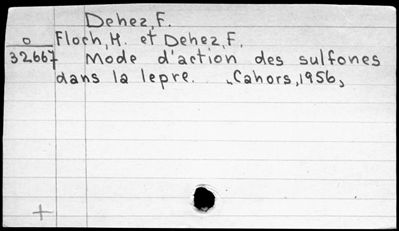 Dehez, F.
o Floch, H. et Dehez, F.
32667 Mode d'action des sulfones
dans la lepre. Cahors, 1956,
+